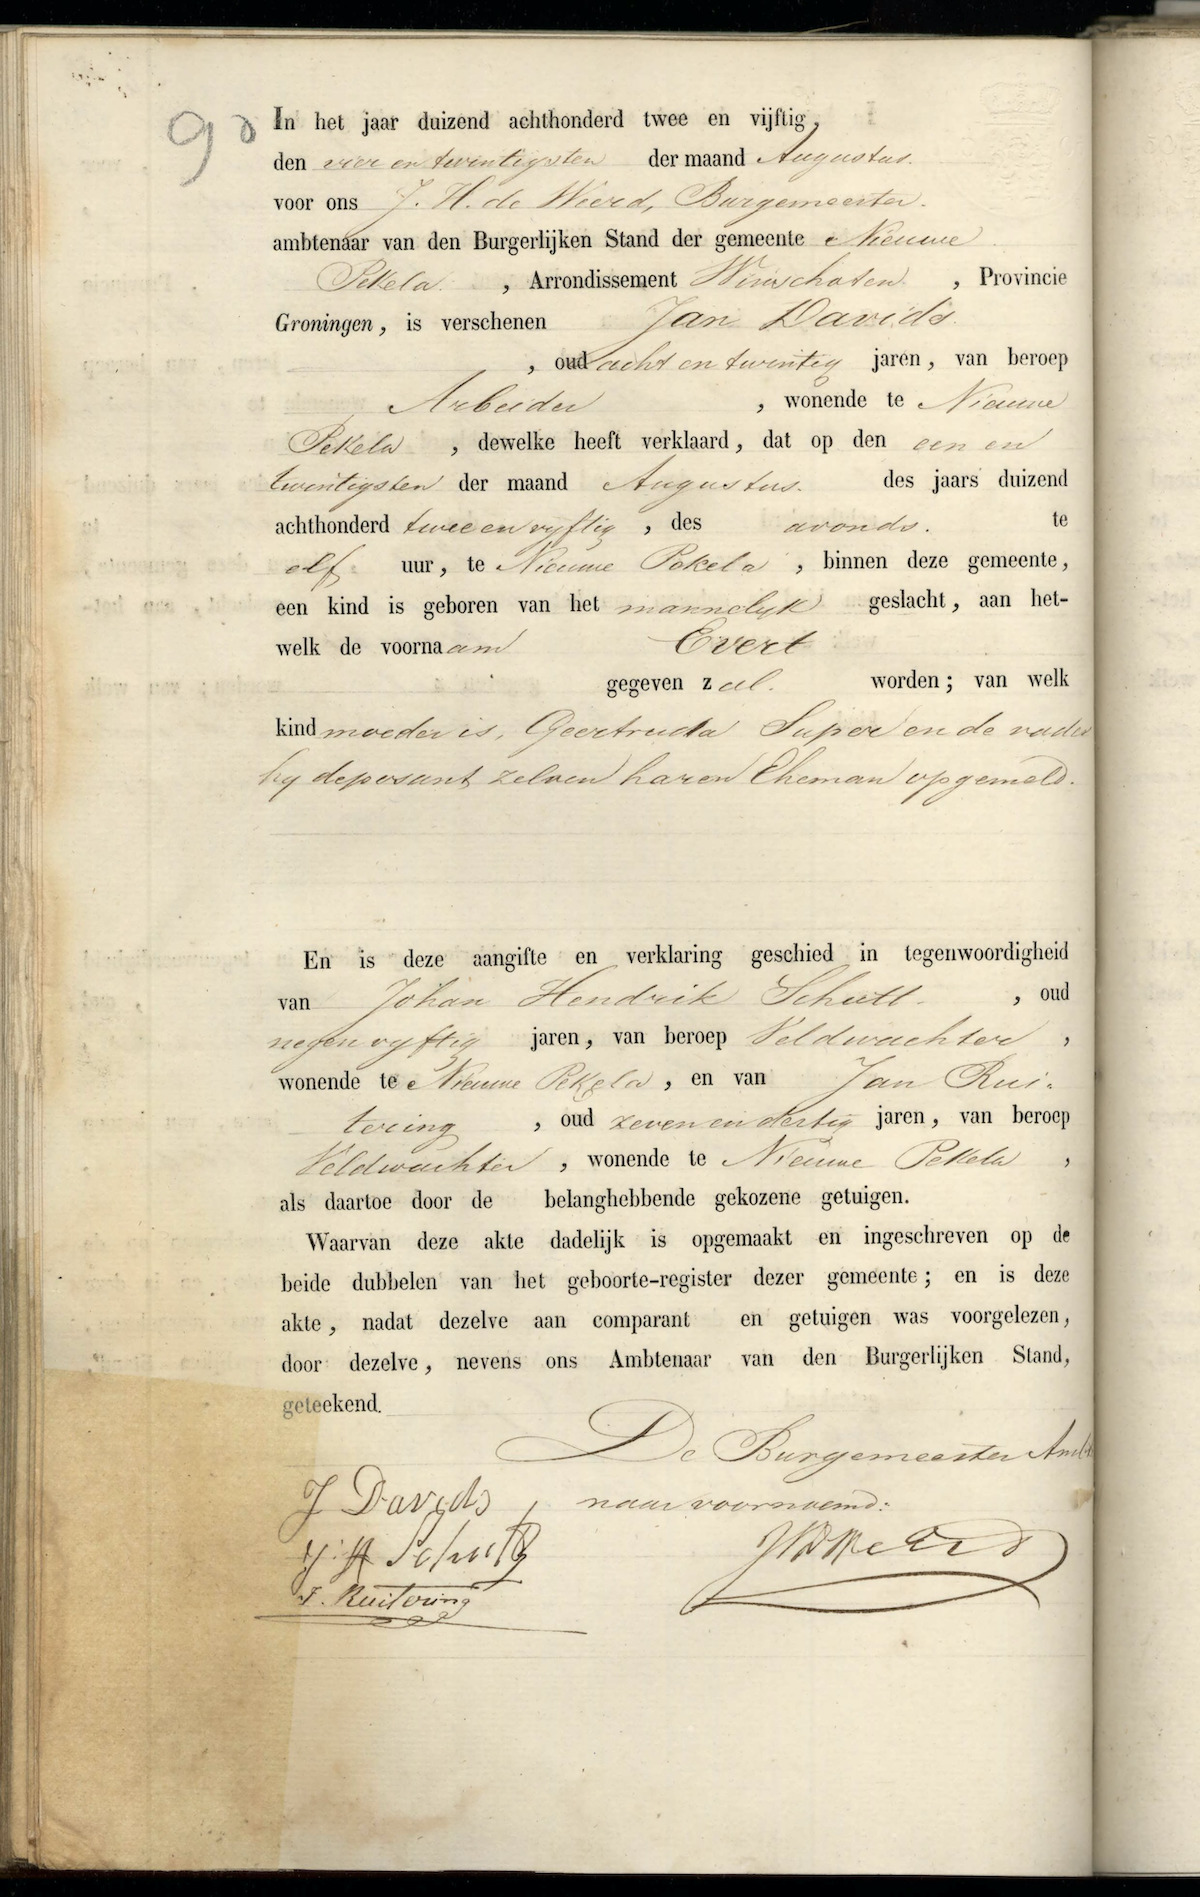 90
In het jaar duizend achthonderd twee en vijftig,
den vier en twintigsten der maand Augustus.
voor ons J. H. de Weerd, Burgemeester.
ambtenaar van den Burgerlijken Stand der gemeente Nieuwe
Pekela. , Arrondissement Winschoten , Provincie
Groningen, is verschenen Jan Davids.
, oud acht en twintig jaren, van beroep
Arbeider , wonende te Nieuwe
Pekela , dewelke heeft verklaard, dat op den een en
twintigsten der maand Augustus. des jaars duizend
achthonderd twee en vyftig , des avonds. te
elf uur, te Nieuwe Pekela , binnen deze gemeente,
een kind is geboren van het mannelyk geslacht, aan het-
welk de voornaam Evert
gegeven zal. worden; van welk
kind moeder is, Geertruda Super en de vader
hy deposant zelven haren Eheman opgemeld.
En is deze aangifte en verklaring geschied in tegenwoordigheid
van Johan Hendrik Schutt. , oud
negen vyftig jaren, van beroep Veldwachter ,
wonende te Nieuwe Pekela , en van Jan Rui-
tering , oud zeven en dertig jaren, van beroep
Veldwachter , wonende te Nieuwe Pekela ,
als daartoe door de belanghebbende gekozene getuigen.
Waarvan deze akte dadelijk is opgemaakt en ingeschreven op de
beide dubbelen van het geboorte-register dezer gemeente; en is deze
akte, nadat dezelve aan comparant en getuigen was voorgelezen,
door dezelve, nevens ons Ambtenaar van den Burgerlijken Stand,
geteekend.
De Burgemeester Ambte
J Davids , naar voornoemd:
J H Schutt JHDWeerd
J. Ruitering